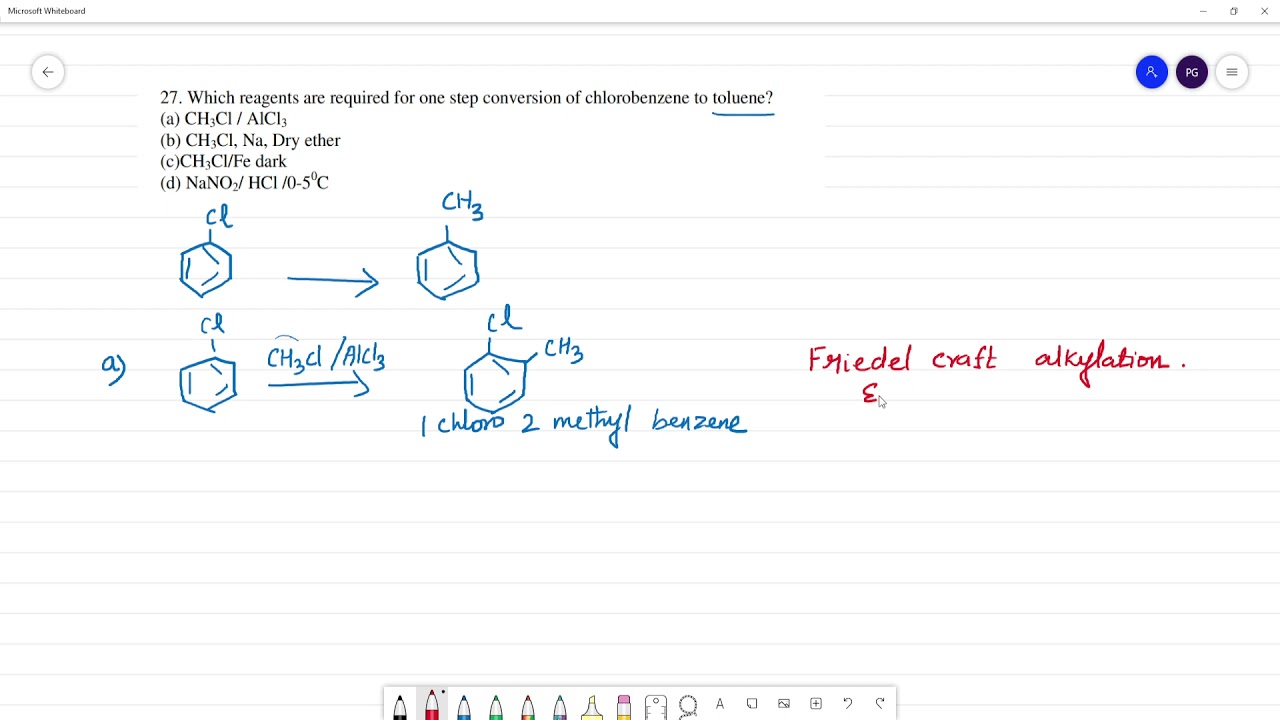 Microsoft Whiteboard
PG
27. Which reagents are required for one step conversion of chlorobenzene to toluene?
(a) CH₃Cl / AlCl₃
(b) CH₃Cl, Na, Dry ether
(c)CH₃Cl/Fe dark
(d) NaNO₂/ HCl /0-5⁰C
Cl
CH₃
a)
Cl
CH₃Cl /AlCl₃
Cl
CH₃
1 chloro 2 methyl benzene
Friedel craft alkylation.
ε
A